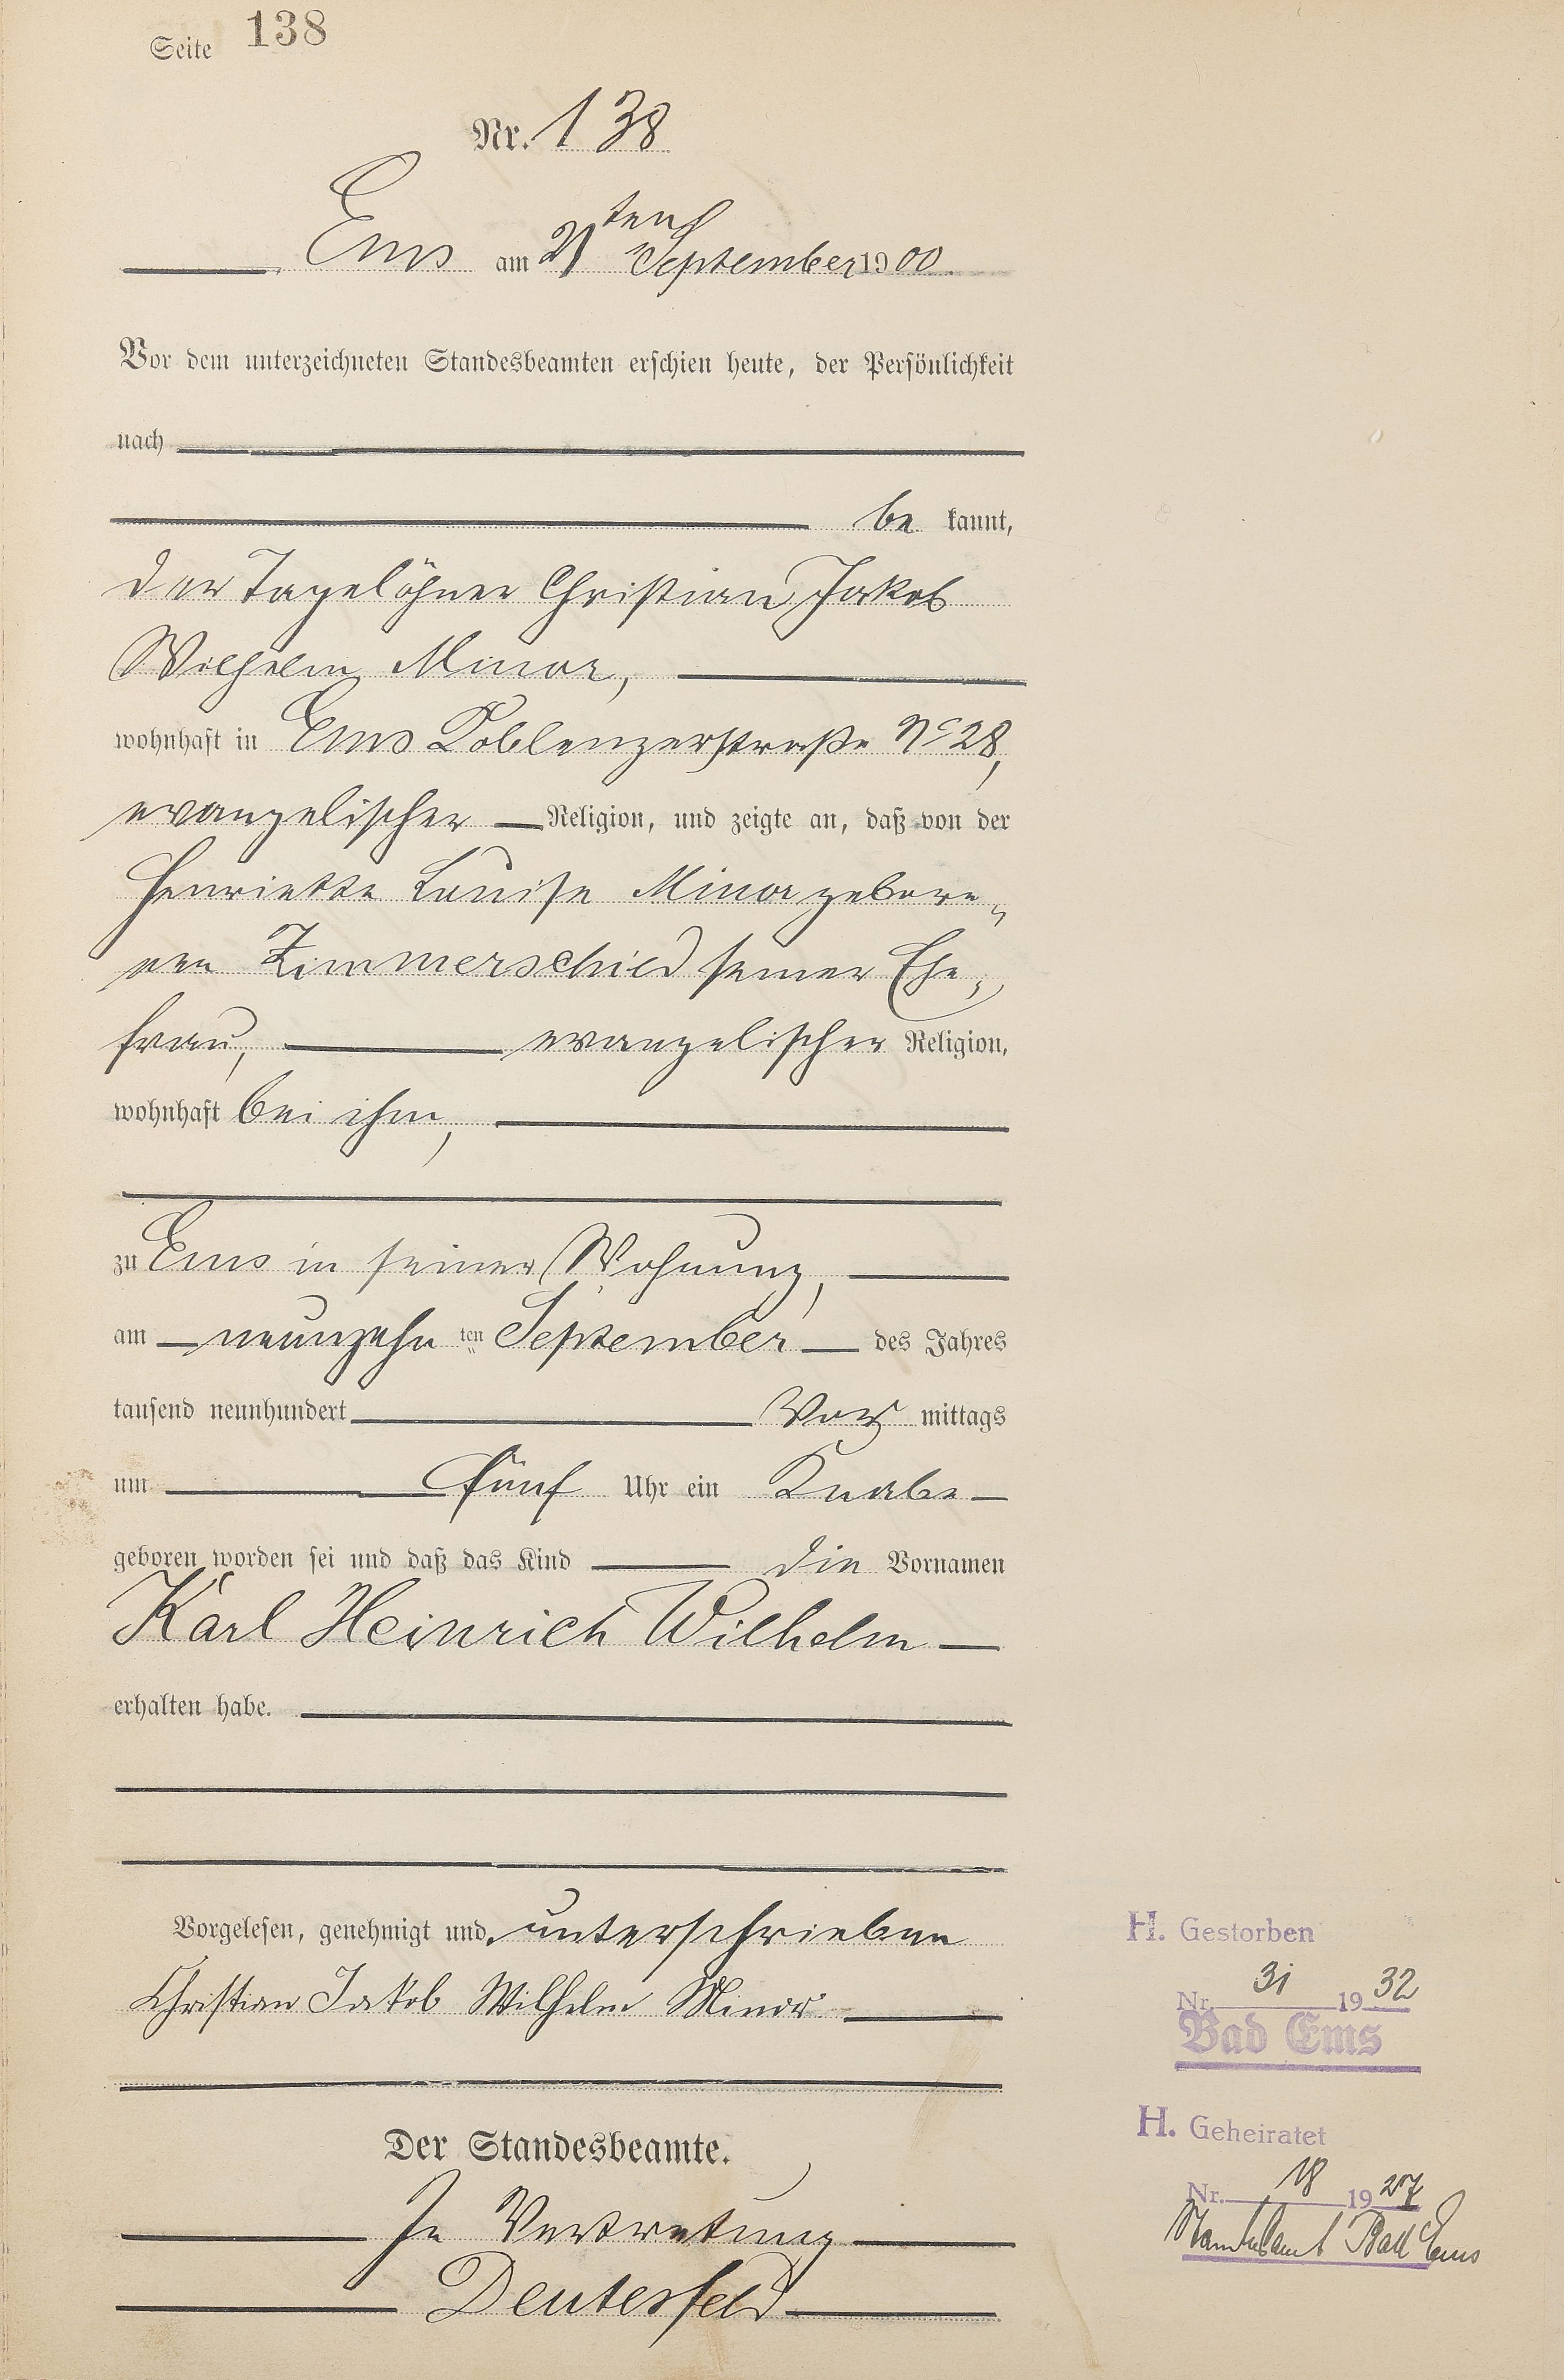 Seite 138
Nr. 138
Ems am 21ten September 1900.
Vor dem unterzeichneten Standesbeamten erschien heute, der Persönlichkeit
nach
be kannt,
der Tagelöhner Christian Jakob
Wilhelm Minor,
wohnhaft in Ems Koblenzerstraße No 28,
evangelischer Religion, und zeigte an, daß von der
Henriette Louise Minor gebore-
nen Zimmerschied seiner Ehe-
frau, evangelischer Religion,
wohnhaft bei ihm,
zu Ems in seiner Wohnung,
am neunzehn ten September des Jahres
tausend neunhundert Vor mittags
um fünf Uhr ein Knabe
geboren worden sei und daß das Kind die Vornamen
Karl Heinrich Wilhelm
erhalten habe.
Vorgelesen, genehmigt und unterschrieben
Christian Jakob Wilhelm Minor
Der Standesbeamte.
In Vertretung
Deutesfeld
H. Gestorben
Nr. 31 1932
Bad Ems
H. Geheiratet
Nr. 18 1927
Standesamt Bad Ems